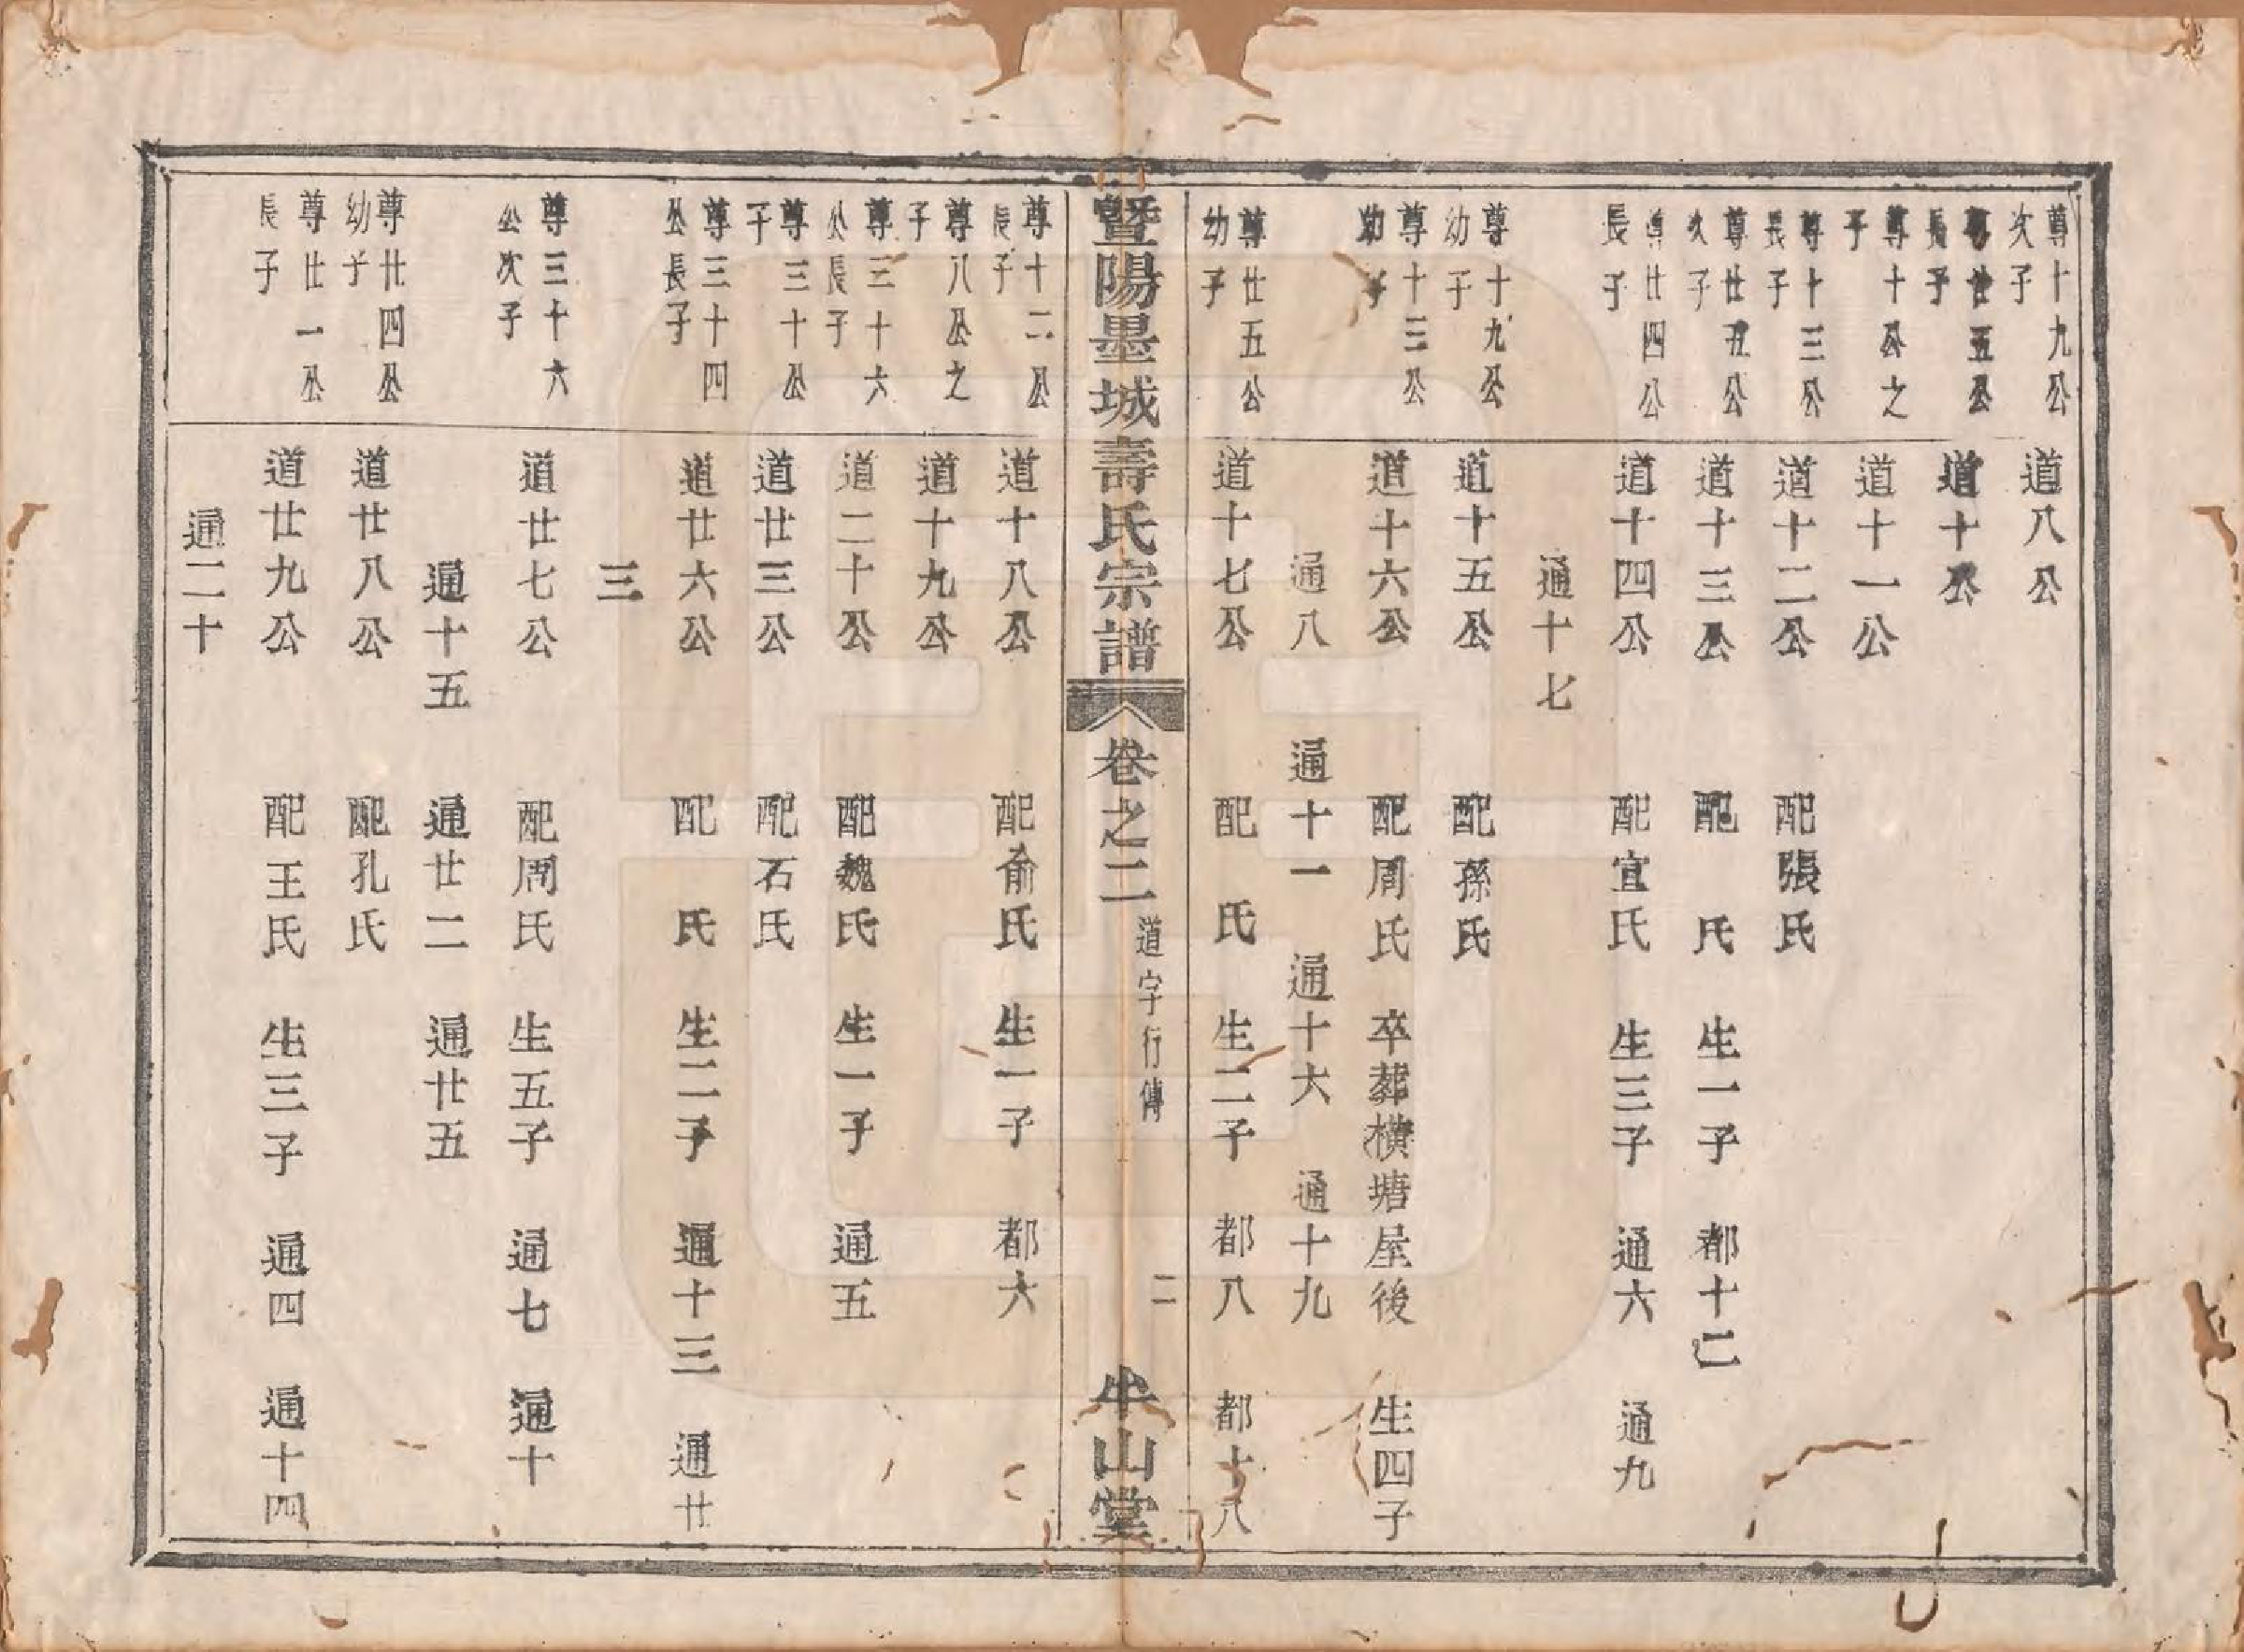 尊十九公次子 道八公
尊廿五公長子 道十公
尊十公之子 道十一公
尊十三公長子 道十二公 配張氏
尊廿五公次子 道十三公 配 氏 生一子 都十二
尊廿四公長子 道十四公 配宣氏 生三子 通六 通九
通十七
尊十九公幼子 道十五公 配孫氏
尊十三公幼子 道十六公 配周氏 卒葬橫塘屋後 生四子
通八 通十一 通十六 通十九
尊廿五公幼子 道十七公 配 氏 生二子 都八 都十八
暨陽墨城壽氏宗譜 卷之二 道字行傳 二 半山堂
尊十二公長子 道十八公 配俞氏 生一子 都六
尊八公之子 道十九公
尊三十六公長子 道二十公 配魏氏 生一子 通五
尊三十公子 道廿三公 配石氏
尊三十四公長子 道廿六公 配 氏 生二子 通十三 通廿
三
尊三十六公次子 道廿七公 配周氏 生五子 通七 通十
通十五 通廿二 通廿五
尊廿四公幼子 道廿八公 配孔氏
尊廿一公長子 道廿九公 配王氏 生三子 通四 通十四
通二十